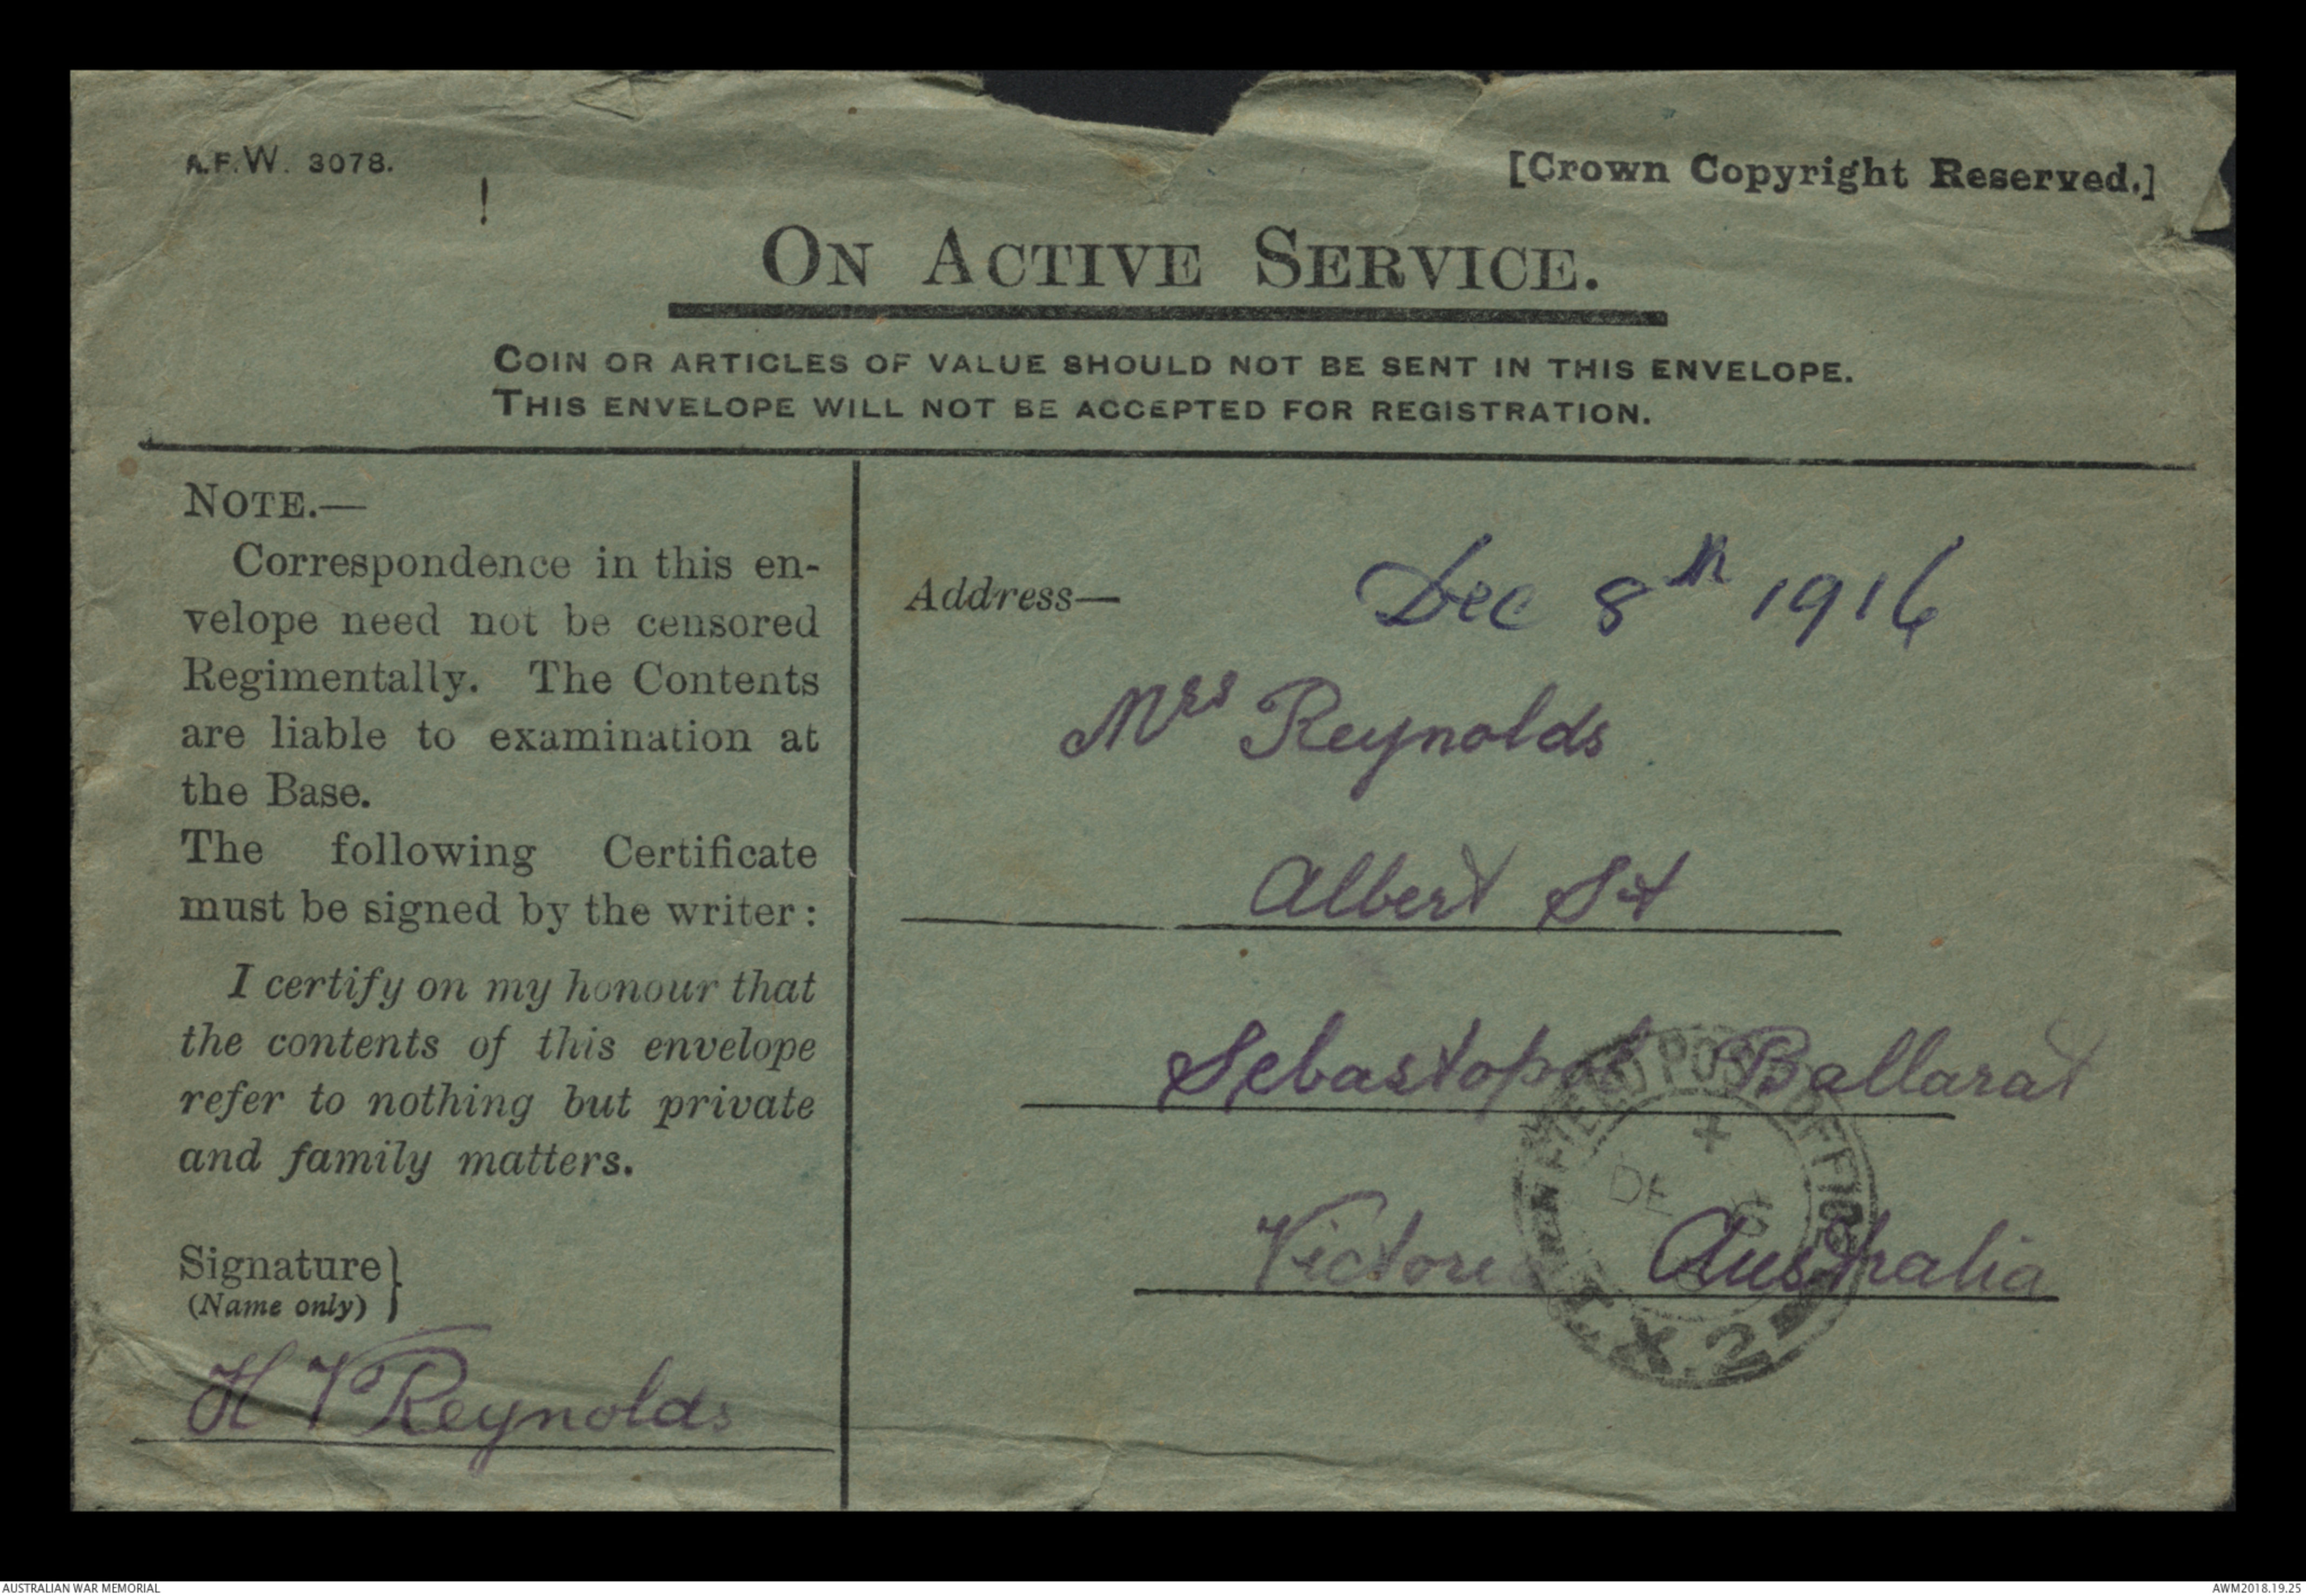 A.F.W. 3078.
[Crown Copyright Reserved.]
ON ACTIVE SERVICE.
COIN OR ARTICLES OF VALUE SHOULD NOT BE SENT IN THIS ENVELOPE.
THIS ENVELOPE WILL NOT BE ACCEPTED FOR REGISTRATION.
NOTE.—
Correspondence in this en-
velope need not be censored
Regimentally. The Contents
are liable to examination at
the Base.
The following Certificate
must be signed by the writer:
I certify on my honour that
the contents of this envelope
refer to nothing but private
and family matters.
Signature}
(Name only)
H V Reynolds
Address—
Dec 8th 1916
Mrs Reynolds
Albert St
Sebastopol Ballarat
Victoria Australia
FIELD POST OFFICE
DE
X.2
AUSTRALIAN WAR MEMORIAL
AWM2018.19.25